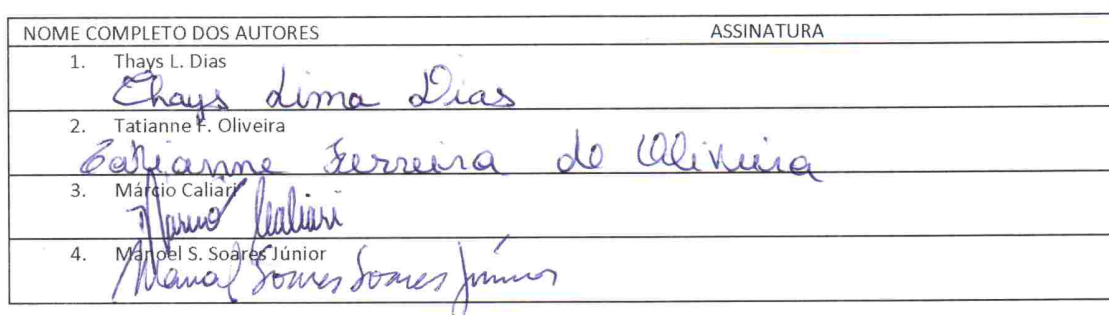 NOME COMPLETO DOS AUTORES ASSINATURA
1. Thays L. Dias
Thays Lima Dias
2. Tatianne F. Oliveira
Tatianne Ferreira de Oliveira
3. Márcio Caliari
Marcio Caliari
4. Manoel S. Soares Júnior
Manoel Soares Soares Júnior